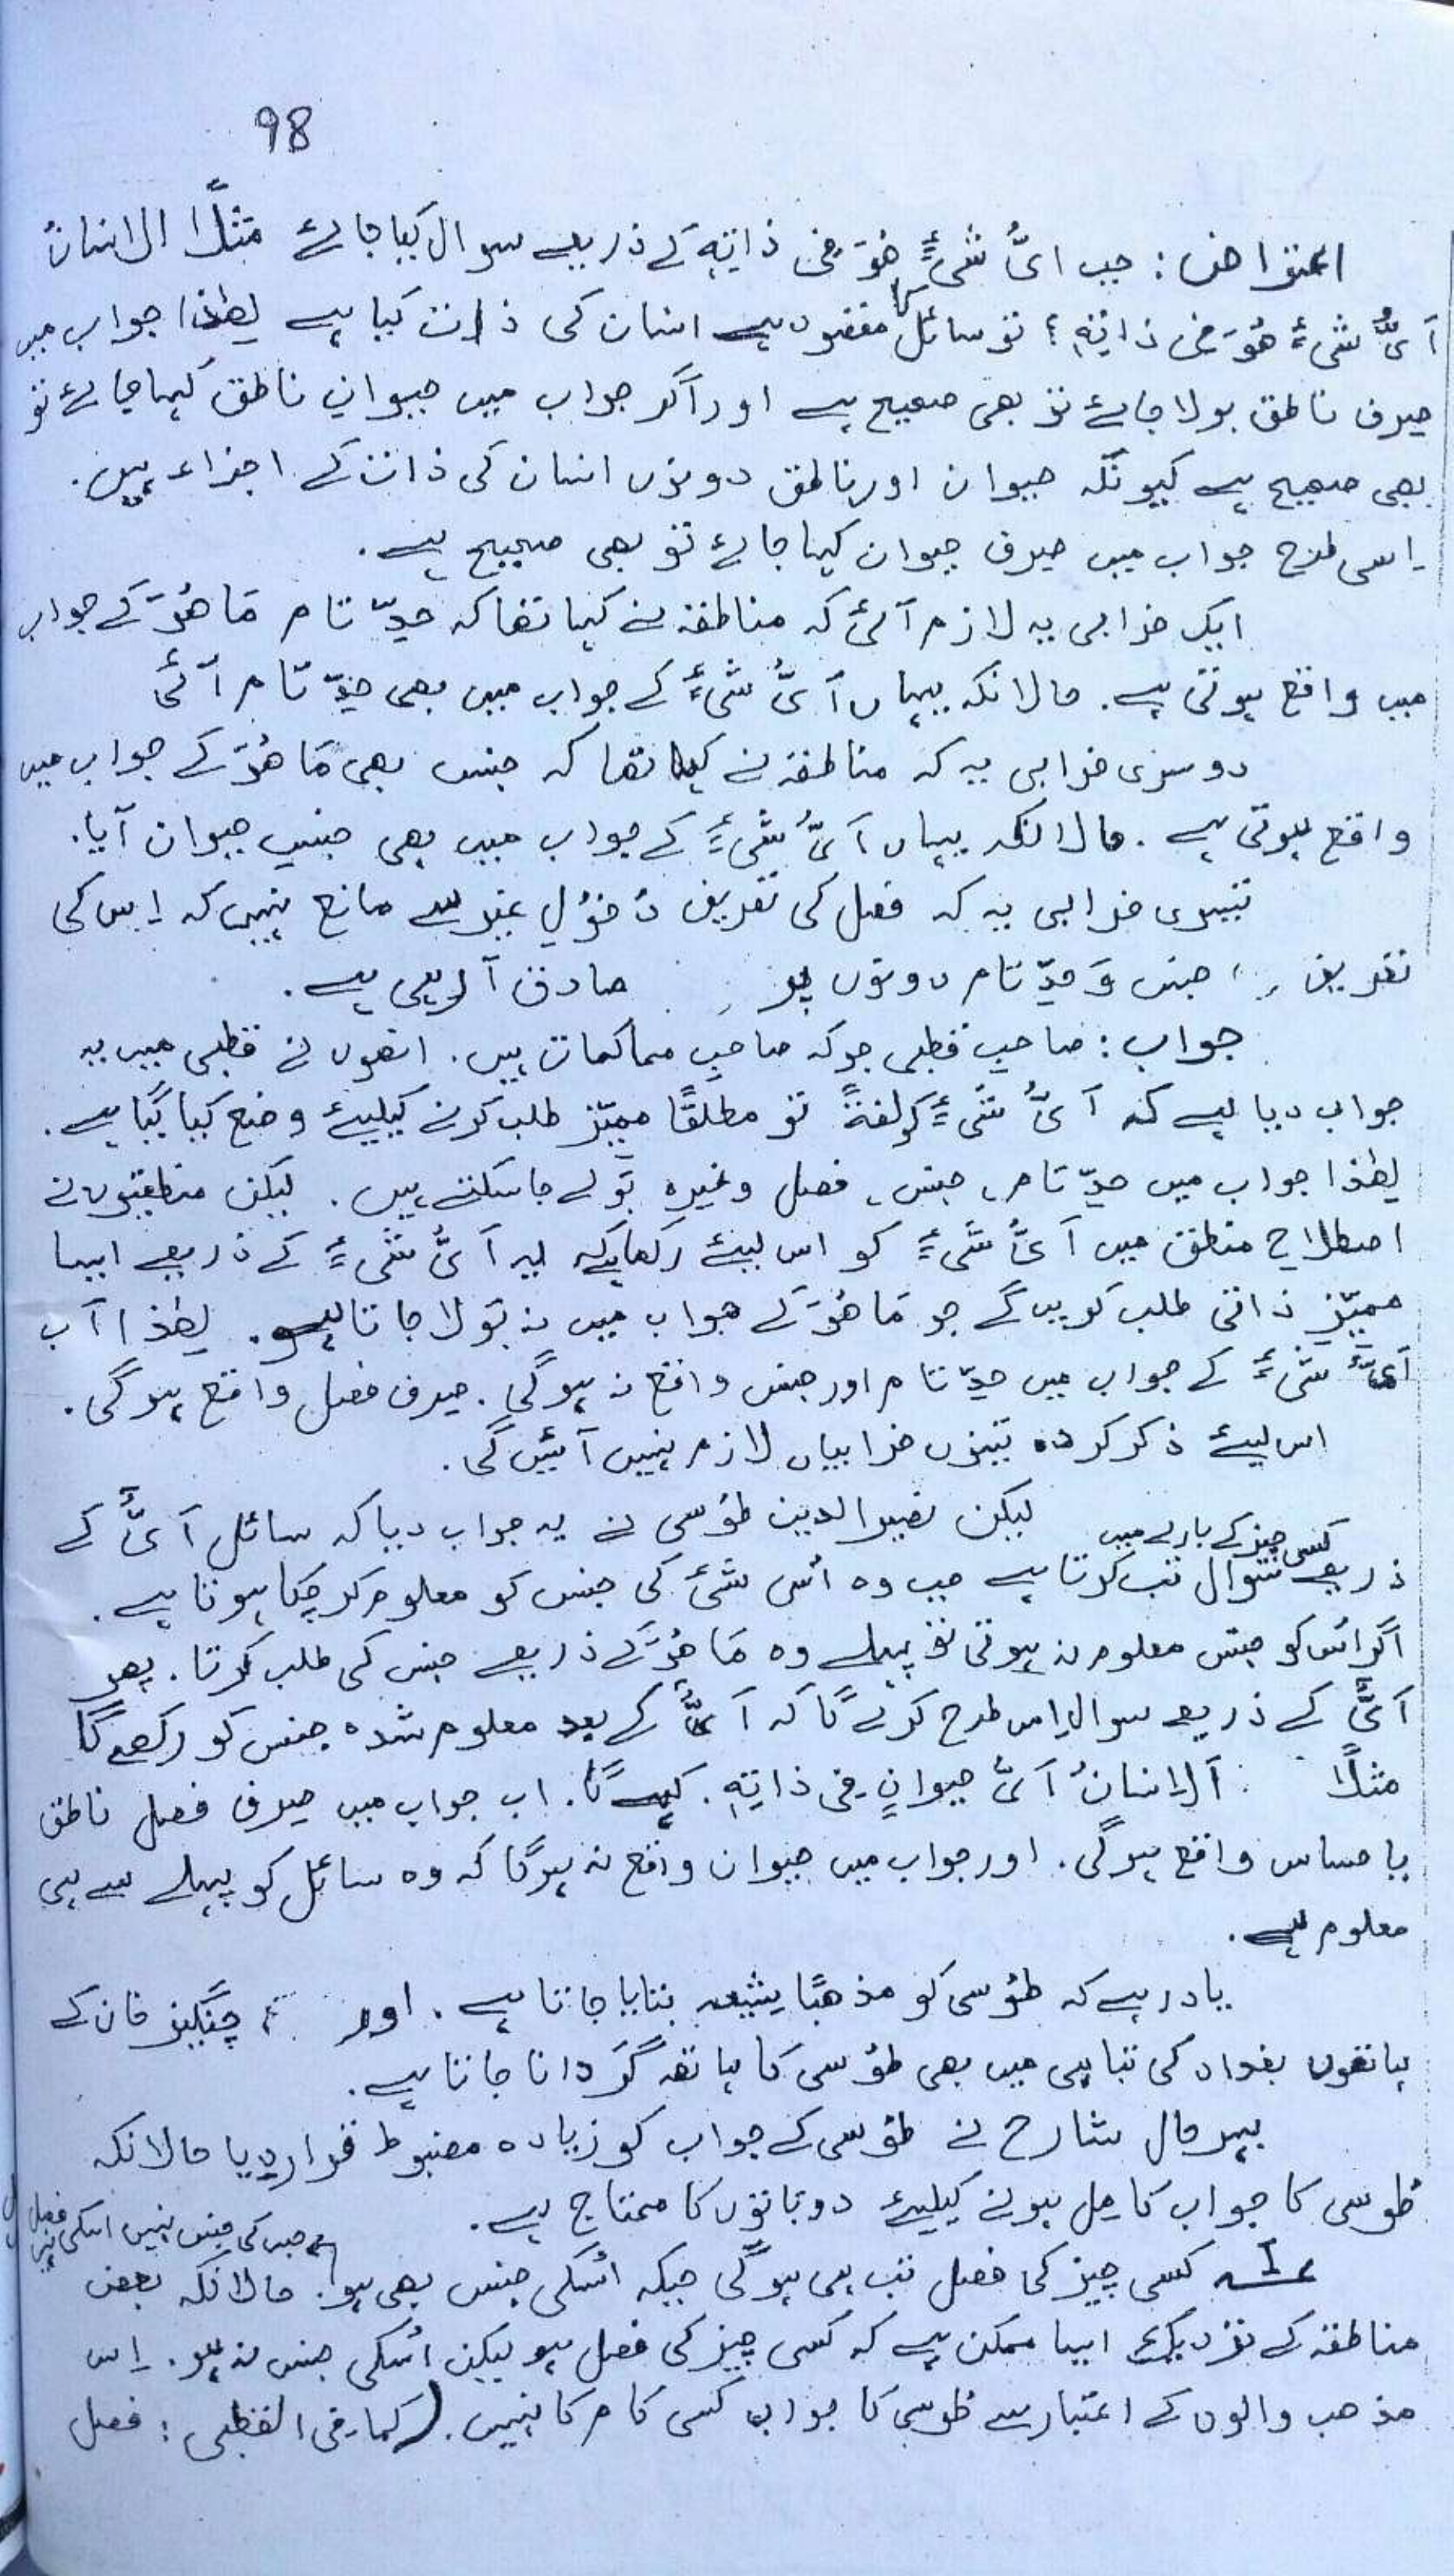 98
اعتراض: جب ایُّ شیءٍ ھُوَ فی ذاتِہٖ کے ذریعے سوال کیا جائے مثلًا الانسانُ
اَیُّ شیءٍ ھُوَ فی ذاتِہٖ؟ تو سائل کا مقصود ہے انسان کی ذات کیا ہے لھٰذا جواب میں
صرف ناطق بولا جائے تو بھی صحیح ہے اور اگر جواب میں حیوانِ ناطق کہا جائے تو
بھی صحیح ہے کیونکہ حیوان اور ناطق دونوں انسان کی ذات کے اجزاء ہیں.
اِسی طرح جواب میں صرف حیوان کہا جائے تو بھی صحیح ہے.
ایک خرابی یہ لازم آئی کہ مناطقہ نے کہا تھا کہ حدِّ تام مَا ھُوَ کے جواب
میں واقع ہوتی ہے. حالانکہ یہاں اَیُّ شیءٍ کے جواب میں بھی حدِّ تام آئی
دوسری خرابی یہ کہ مناطقہ نے کہا تھا کہ جنس بھی مَا ھُوَ کے جواب میں
واقع ہوتی ہے. حالانکہ یہاں اَیُّ شیءٍ کے جواب میں بھی جنس حیوان آیا.
تیسری خرابی یہ کہ فصل کی تعریف دُخولِ غیر سے مانع نہیں کہ اِس کی
تعریف جنس وَ حدِّ تام دونوں پر صادق آ رہی ہے.
جواب: صاحبِ قطبی جو کہ صاحبِ محاکمات ہیں. انھوں نے قطبی میں یہ
جواب دیا ہے کہ اَیُّ شیءٍ کو لغۃً تو مطلقًا ممیّز طلب کرنے کیلیئے وضع کیا گیا ہے.
لھٰذا جواب میں حدِّ تام، جنس، فصل وغیرہ بولے جا سکتے ہیں. لیکن منطقیوں نے
اصطلاحِ منطق میں اَیُّ شَیءٍ کو اس لیئے رکھا ہے کہ اَیُّ شیءٍ کے ذریعے ایسا
ممیّزِ ذاتی طلب کریں گے جو مَا ھُوَ کے جواب میں نہ بولا جاتا ہو. لھٰذا اَب
اَیُّ شیءٍ کے جواب میں حدِّ تام اور جنس واقع نہ ہوگی. صرف فصل واقع ہوگی.
اس لیئے ذکر کردہ تینوں خرابیاں لازم نہیں آئیں گی.
لیکن نصیر الدین طوسی نے یہ جواب دیا کہ سائل اَیُّ کے
ذریعے کسی چیز کے بارے میں سوال تب کرتا ہے جب وہ اُس شئ کی جنس کو معلوم کر چکا ہوتا ہے.
اگر اُس کو جنس معلوم نہ ہوتی تو پہلے وہ مَا ھُوَ کے ذریعے جنس کی طلب کرتا. پھر
اَیُّ کے ذریعے سوال اِس طرح کرے گا کہ اَیُّ کے بعد معلوم شدہ جنس کو رکھے گا
مثلًا: اَلاِنسانُ اَیُّ حیوانٍ فی ذاتِہٖ. کہے گا. اب جواب میں صرف فصل ناطق
یا حساس واقع ہوگی. اور جواب میں حیوان واقع نہ ہوگا کہ وہ سائل کو پہلے سے ہی
معلوم ہے.
یاد رہے کہ طوسی کو مذھبًا شیعہ بتایا جاتا ہے. اور چنگیز خان کے
ہاتھوں بغداد کی تباہی میں بھی طوسی کا ہاتھ گردانا جاتا ہے.
بہرحال شارح نے طوسی کے جواب کو زیادہ مضبوط قرار دیا حالانکہ
طوسی کا جواب کامل ہونے کیلیئے دو باتوں کا محتاج ہے.
جس کی جنس نہیں اسکی فصل نہیں
1 کسی چیز کی فصل تب ہی ہوگی جبکہ اُسکی جنس بھی ہو. حالانکہ بعض
مناطقہ کے نزدیک ایسا ممکن ہے کہ کسی چیز کی فصل ہو لیکن اُسکی جنس نہ ہو. اِس
مذھب والوں کے اعتبار سے طوسی کا جواب کسی کام کا نہیں. (کما فی القطبی: فصل